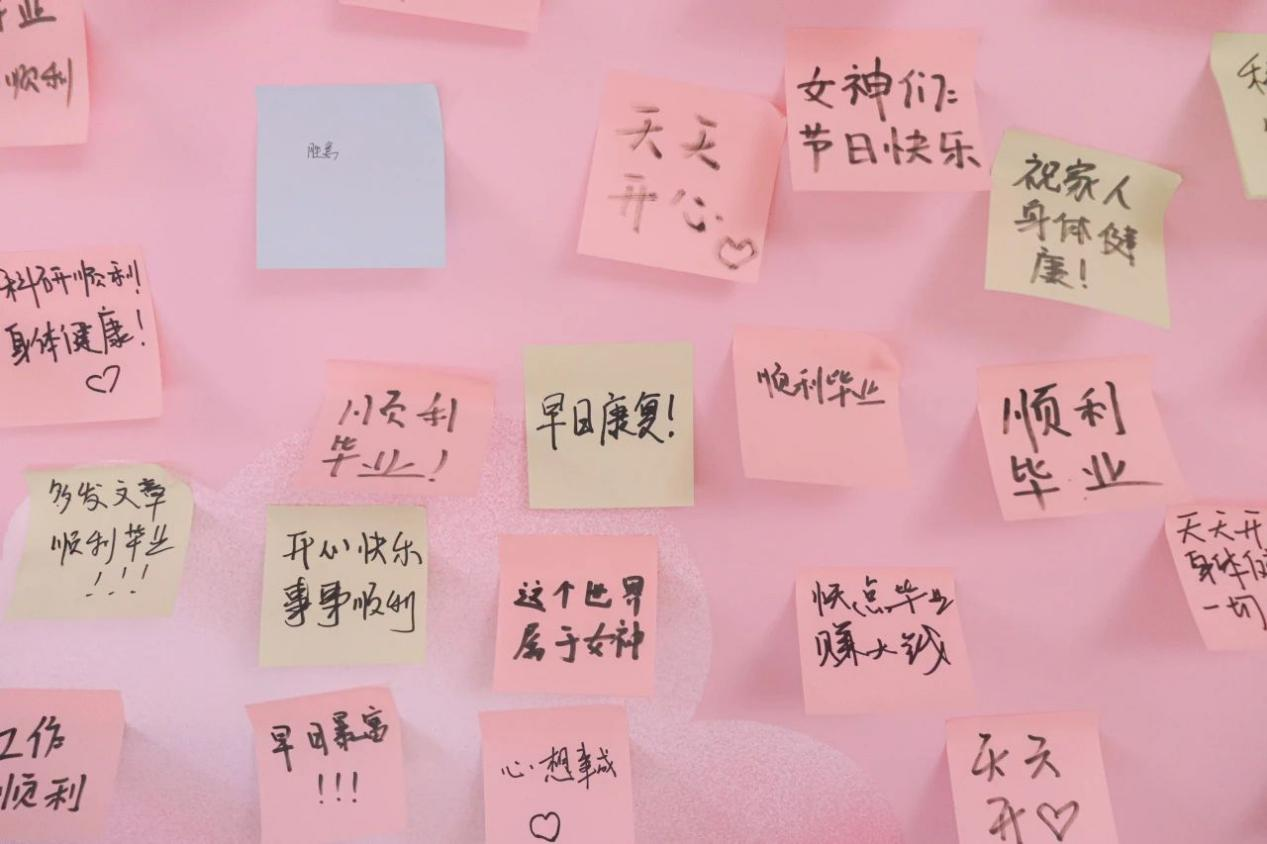 毕业
顺利
女神们:
节日快乐
天天
开心
祝家人
身体健
康!
科研顺利!
身体健康!
顺利
毕业!
早日康复!
顺利毕业
顺利
毕业
多发文章
顺利毕业
!!!
开心快乐
事事顺利
这个世界
属于女神
快点毕业
赚大钱
天天开
身体健
一切
工作
顺利
早日暴富
!!!
心想事成
天天
开